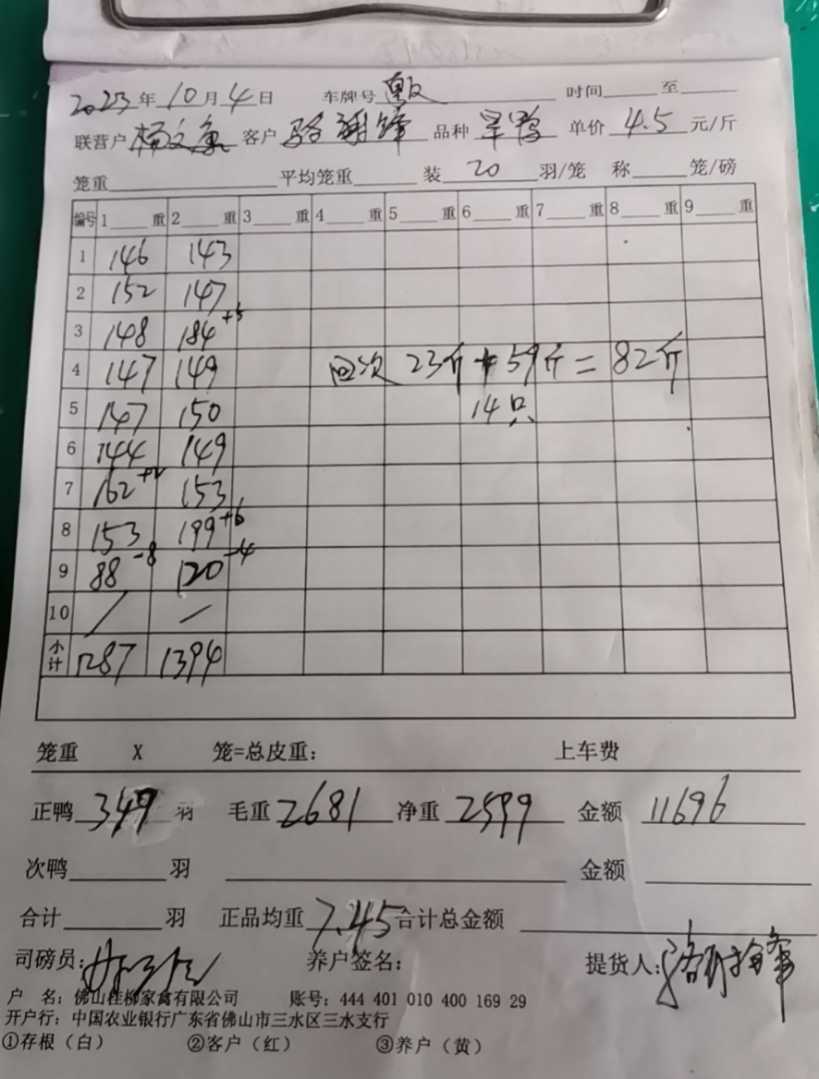 2023年10月4日 车牌号 时间 至
联营户 客户 骆 锋 品种 旱鸭 单价 4.5 元/斤
笼重 平均笼重 装 20 羽/笼 称 笼/磅
编号 1 重 2 重 3 重 4 重 5 重 6 重 7 重 8 重 9 重
1 146 143
2 152 147
3 148 184+5
4 147 149 回次 23斤+59斤=82斤
5 147 150 14只
6 144 149
7 162+2 153
8 153 199+6
9 88-8 120-4
10 / /
小计 1287 1394
笼重 X 笼=总皮重： 上车费
正鸭 349 羽 毛重 2681 净重 2599 金额 11696
次鸭 羽 金额
合计 羽 正品均重 7.45 合计总金额
司磅员： 养户签名： 提货人：
户 名：佛山桂柳家禽有限公司 账号：444 401 010 400 169 29
开户行：中国农业银行广东省佛山市三水区三水支行
①存根（白） ②客户（红） ③养户（黄）